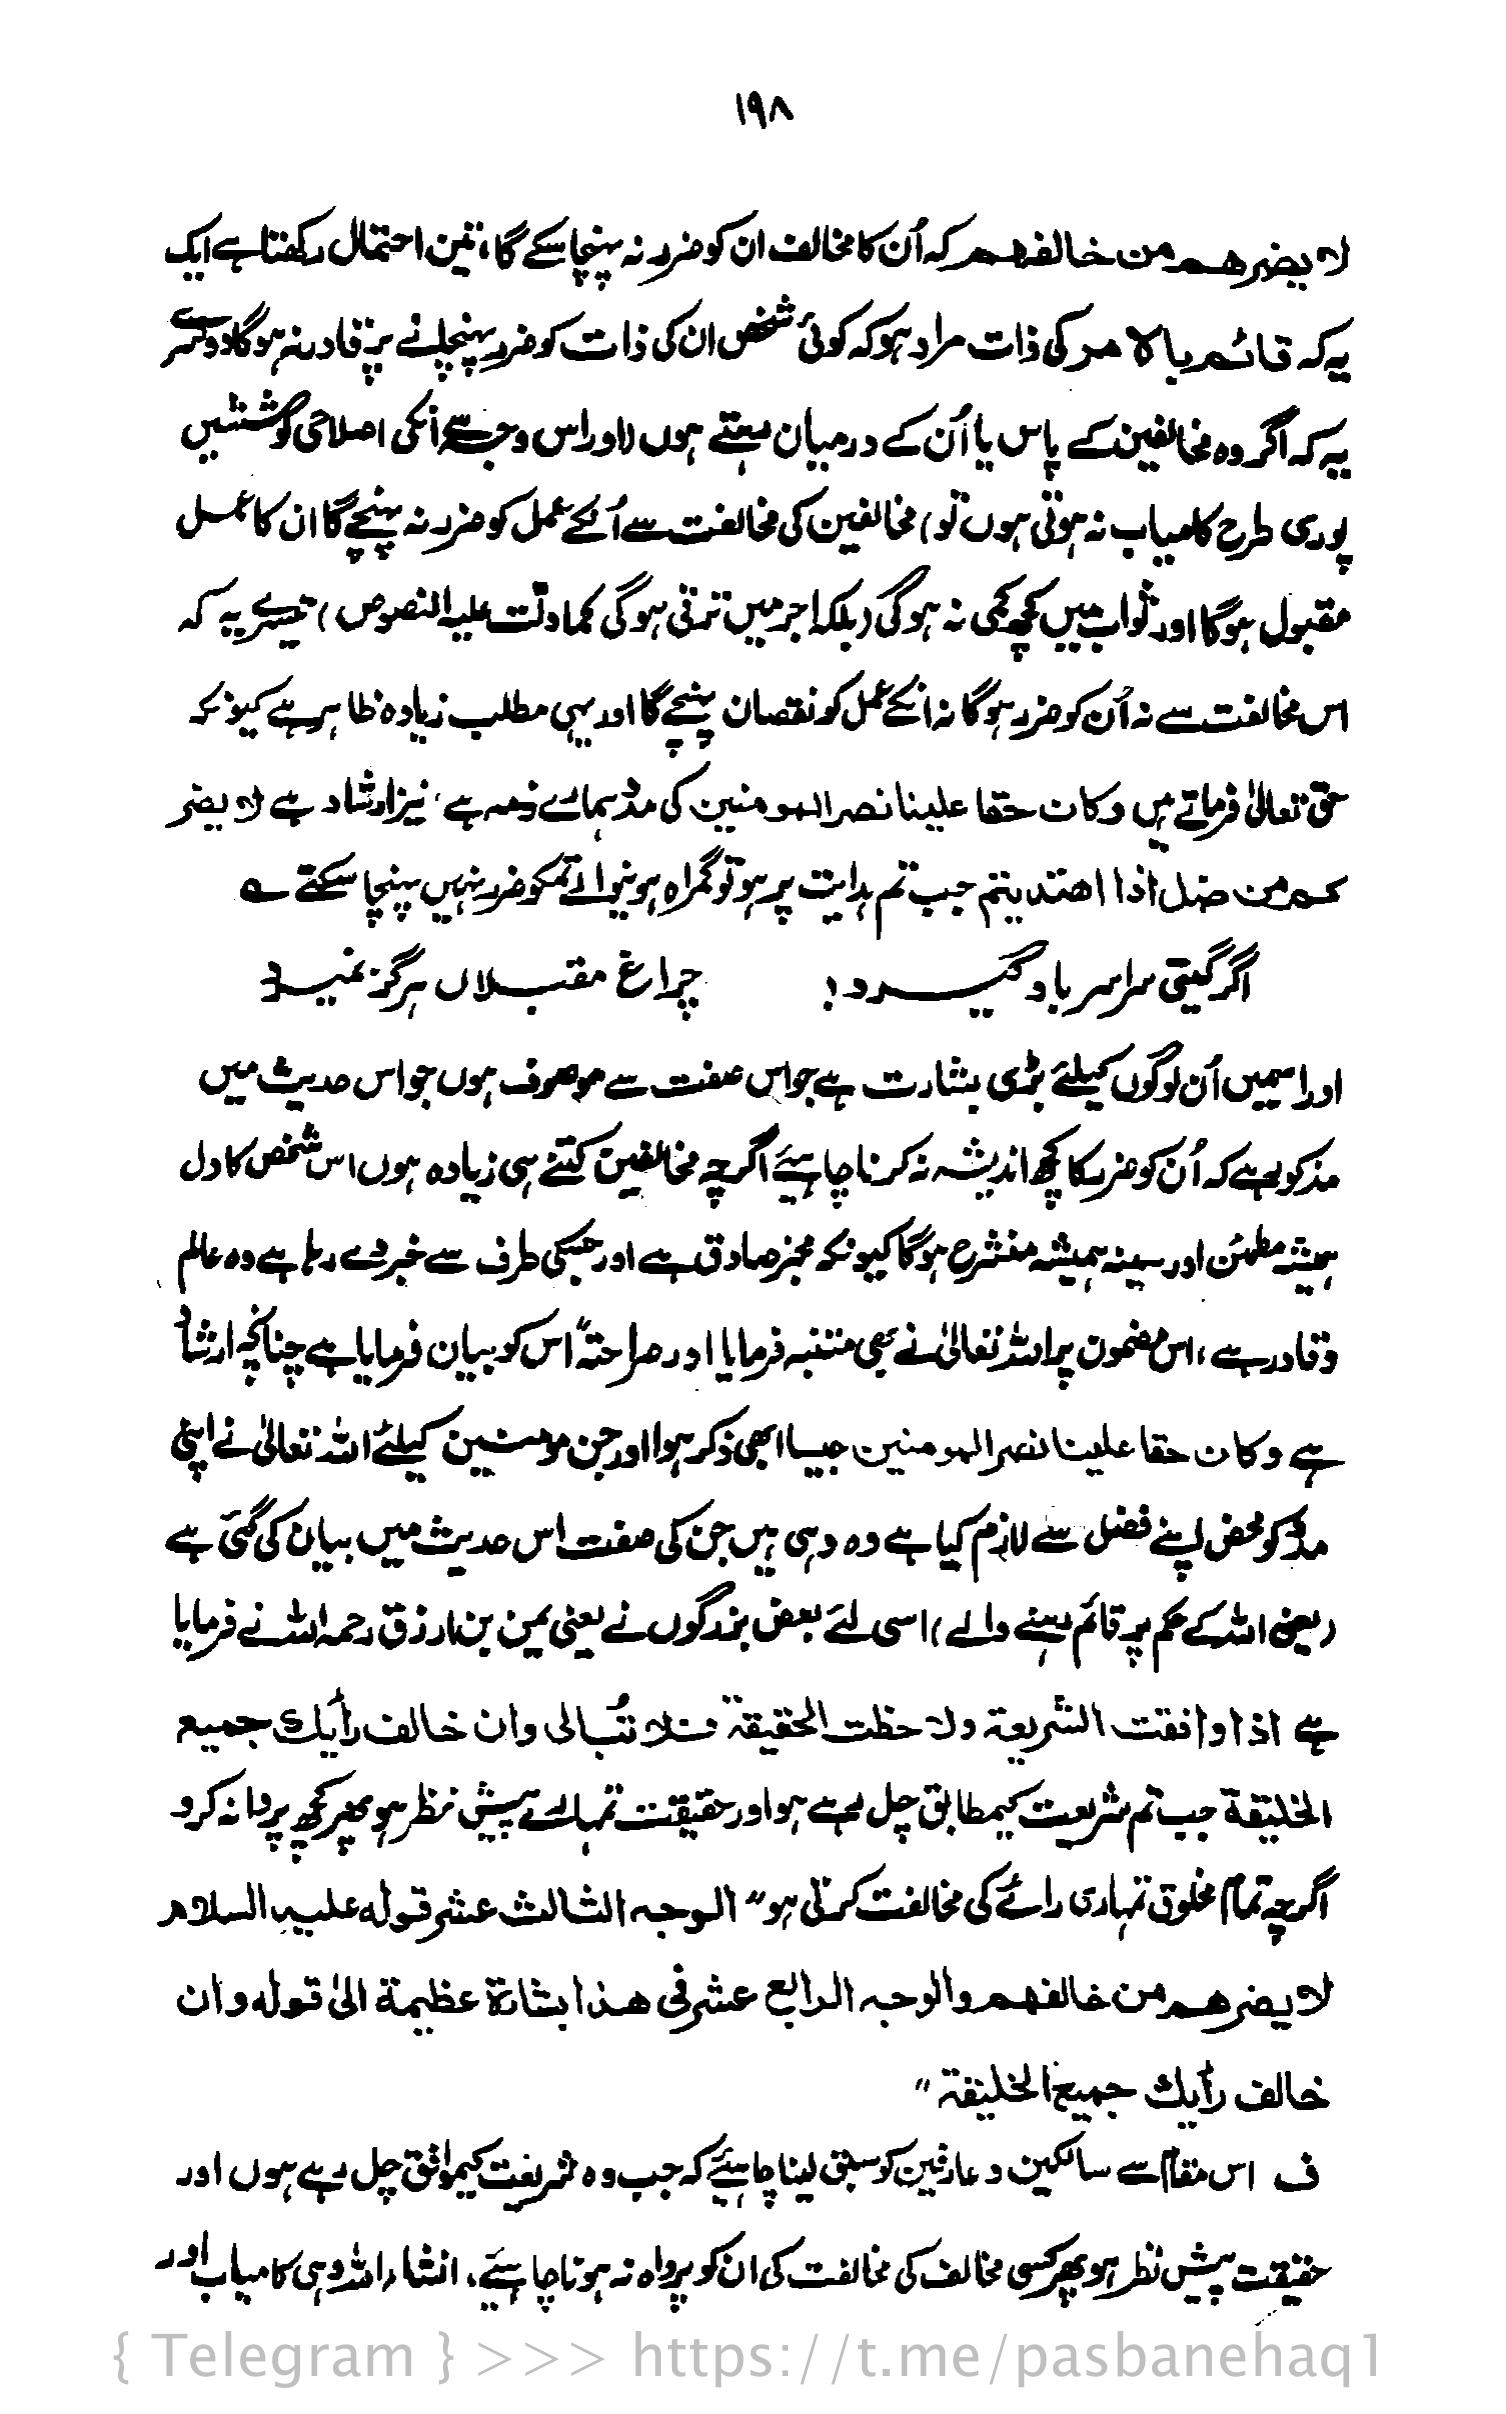 ۱۹۸
لا یضرهم من خالفهم کہ اُن کا مخالف ان کو ضرر نہ پہنچا سکے گا، تین احتمال رکھتا ہے ایک
یہ کہ قائم بالامر کی ذات مراد ہو کہ کوئی شخص ان کی ذات کو ضرر پہنچانے پر قادر نہ ہوگا دوسرے
یہ کہ اگر وہ مخالفین کے پاس یا اُن کے درمیان رہتے ہوں (اور اس وجہ سے انکی اصلاحی کوششیں
پوری طرح کامیاب نہ ہوتی ہوں تو) مخالفین کی مخالفت سے اُنکے عمل کو ضرر نہ پہنچے گا ان کا عمل
مقبول ہوگا اور ثواب میں کچھ کمی نہ ہوگی (بلکہ اجر میں ترقی ہوگی کما دلّت علیہ النصوص) تیسرے یہ کہ
اس مخالفت سے نہ اُن کو ضرر ہوگا نہ انکے عمل کو نقصان پہنچے گا اور یہی مطلب زیادہ ظاہر ہے کیونکہ
حق تعالیٰ فرماتے ہیں وکان حقا علینا نصر المومنین کی مدد ہمارے ذمہ ہے، نیز ارشاد ہے لا یضر
کم من ضل اذا اھتدیتم جب تم ہدایت پر ہو تو گمراہ ہونیوالے تمکو ضرر نہیں پہنچا سکتے ؎
اگر گیتی سراسر باد گیرد ؛ چراغ مقبلاں ہرگز نمیرد
اور اسمیں اُن لوگوں کیلئے بڑی بشارت ہے جو اس صفت سے موصوف ہوں جو اس حدیث میں
مذکور ہے کہ اُن کو ضرر کا کچھ اندیشہ نہ کرنا چاہیئے اگرچہ مخالفین کتنے ہی زیادہ ہوں اس شخص کا دل
ہمیشہ مطمئن اور سینہ ہمیشہ منشرح ہوگا کیونکہ مخبر صادق ہے اور جسکی طرف سے خبر دے رہا ہے وہ عالم
وقادر ہے، اس مضمون پر اللہ تعالیٰ نے بھی متنبہ فرمایا اور صراحتہً اس کو بیان فرمایا ہے چنانچہ ارشاد
ہے وکان حقا علینا نصر المومنین جیسا ابھی ذکر ہوا اور جن مومنین کیلئے اللہ تعالیٰ نے اپنی
مدد کو محض اپنے فضل سے لازم کیا ہے وہ وہی ہیں جن کی صفت اس حدیث میں بیان کی گئی ہے
(یعنی اللہ کے حکم پر قائم رہنے والے) اسی لئے بعض بزرگوں نے یعنی یمین بن رزق رحمہ اللہ نے فرمایا
ہے اذا وافقت الشریعۃ ولاحظت الحقیقۃ فلا تُبالی وان خالف رأیك جمیع
الخلیقۃ جب تم شریعت کیمطابق چل رہے ہو اور حقیقت تمہارے پیش نظر ہو پھر کچھ پروا نہ کرو
اگرچہ تمام مخلوق تمہاری رائے کی مخالفت کرتی ہو" الوجہ الثالث عشر قولہ علیہ السلام
لا یضرهم من خالفهم والوجہ الرابع عشر فی هذا بشارۃ عظیمۃ الیٰ قولہ وان
خالف رأیك جمیع الخلیقۃ"
ف اس مقام سے سالکین و عارفین کو سبق لینا چاہیئے کہ جب وہ شریعت کیموافق چل رہے ہوں اور
حقیقت پیش نظر ہو پھر کسی مخالف کی مخالفت کی ان کو پرواہ نہ ہونا چاہیئے، انشاء اللہ وہی کامیاب اور
{ Telegram } >>> https://t.me/pasbanehaq1